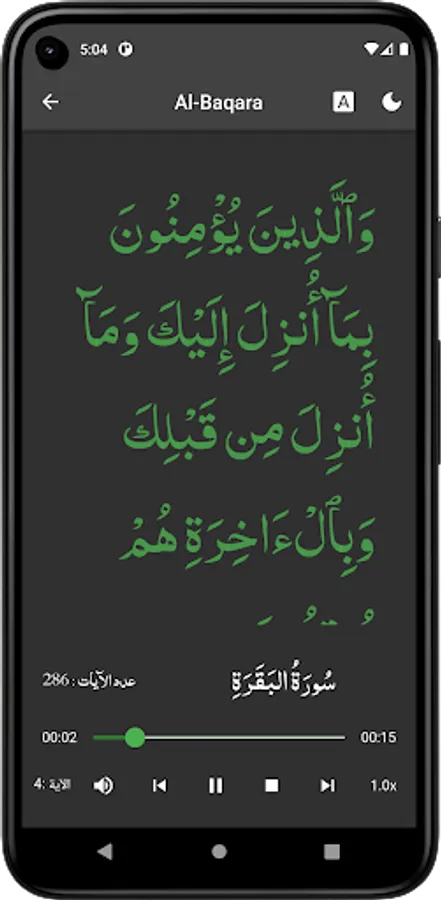 5:04
Al-Baqara
A
وَٱلَّذِينَ يُؤْمِنُونَ
بِمَآ أُنزِلَ إِلَيْكَ وَمَآ
أُنزِلَ مِن قَبْلِكَ
وَبِٱلْءَاخِرَةِ هُمْ
عدد الآيات : 286
سُورَةُ البَقَرَةِ
00:02
00:15
الآية :4
1.0x